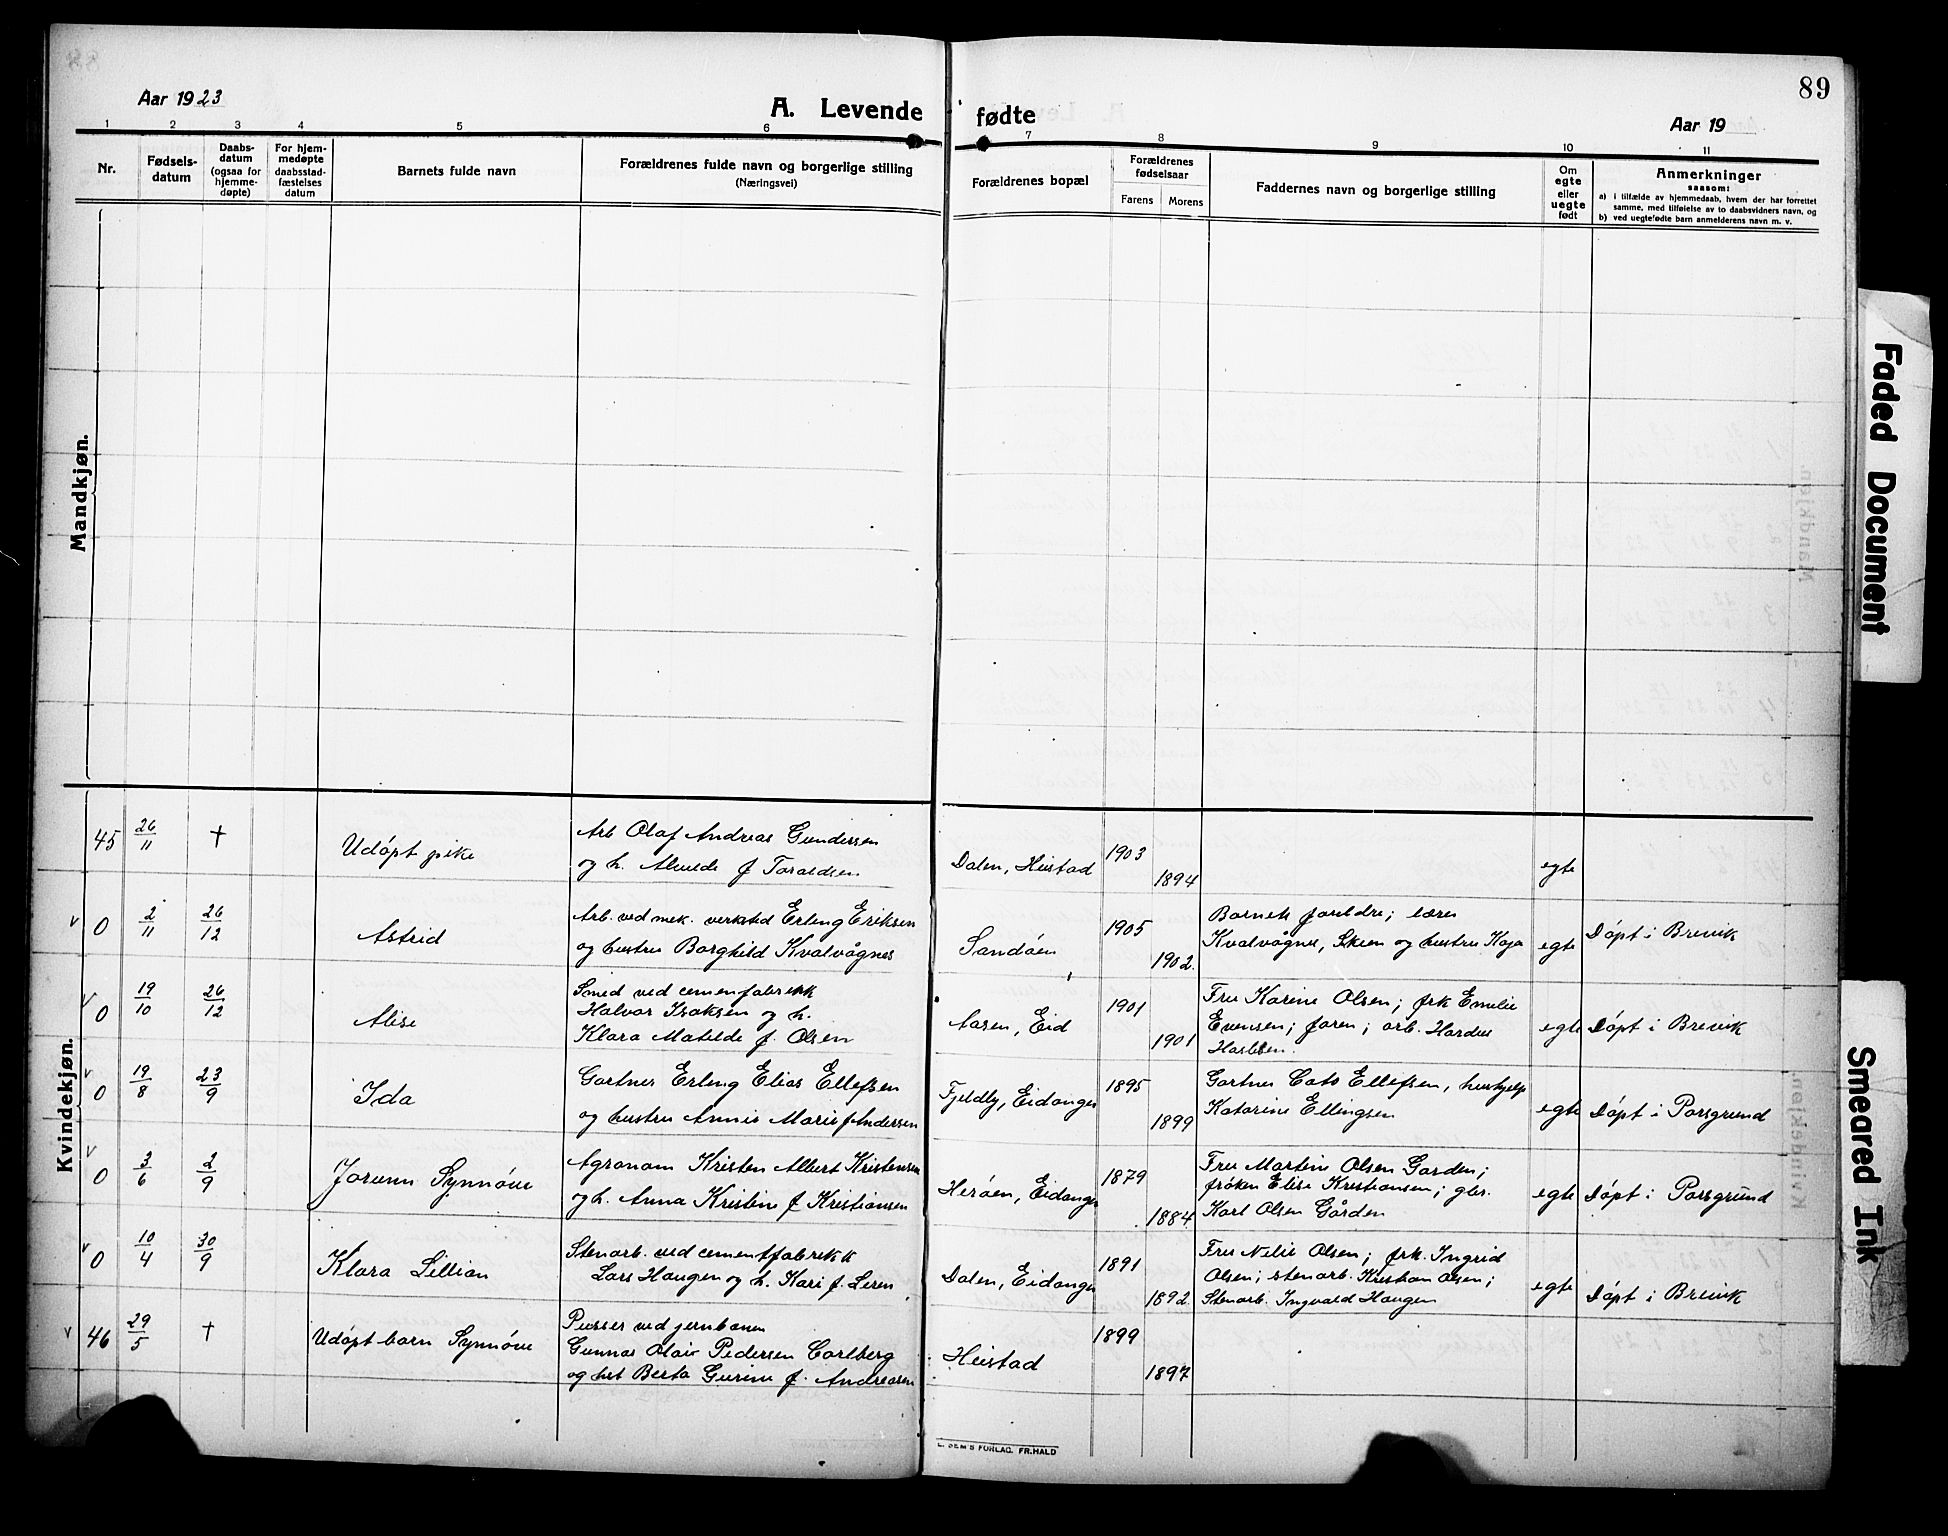 89
Aar 1923
A. Levende fødte
Aar 19
1 2 3 4 5 6 7 8 9 10 11
Nr.
Fødsels-
datum
Daabs-
datum
(ogsaa for
hjemme-
døpte)
For hjem-
medøpte
daabsstad-
fæstelses
datum
Barnets fulde navn
Forældrenes fulde navn og borgerlige stilling
(Næringsvei)
Forældrenes bopæl
Forældrenes
fødselsaar
Farens Morens
Faddernes navn og borgerlige stilling
Om
egte
eller
uegte
født
Anmerkninger
saasom:
a) i tilfælde av hjemmedaab, hvem der har forrettet
samme, med tilføielse av to daabsvidners navn, og
b) ved uegtefødte barn anmelderens navn m. v.
Mandkjøn.
Kvindekjøn.
45 26/11 † Udøpt pike
Arb Olaf Andreas Gundersen
og h. Almilde f Toraldsen
Dalen, Heistad 1903 1894 egte
v 0 2/11 26/12 Astrid
Arb. ved mek. verksted Erling Eriksen
og hustru Borghild Kvalvågnes
Sandøen 1905 1902.
Barnets foreldre; lærer
Kvalvågnes, Skien og hustru Kaja
egte Døpt i Brevik
v 0 19/10 26/12 Alise
Smed ved cemenfabrikk
Halvor Isaksen og h.
Klara Matilde f. Olsen
Aasen, Eid 1901 1901
Fru Karine Olsen; frk Emilie
Evensen; faren; arb. Hardus
egte Døpt i Brevik
v 0 19/8 23/9 Ida
Gartner Erling Elias Ellefsen
og hustru Annie Marie f Andersen
Fjeldly, Eidanger 1895 1899
Gartner Cato Ellefsen, hushjelp
Katarine Ellingsen
egte Døpt i Porsgrund
v 0 3/6 2/9 Jorunn Synnøve
Agronom Kristen Albert Kristensen
og h. Anna Kristine f Kristiansen
Herøen, Eidanger 1879 1884
Fru Martine Olsen Garden;
frøken Elise Kristiansen; gbr.
Karl Olsen Gården
egte Døpt i Porsgrund
v 0 10/4 30/9 Klara Lillian
Stenarb. ved cementfabrikk
Lars Haugen og h. Kari f. Leren
Dalen, Eidanger 1891 1892.
Fru Nelie Olsen; frk. Ingrid
Olsen; stenarb. Kristian Olsen;
Stenarb. Ingvald Haugen
egte Døpt i Brevik
v 46 29/5 † Udøpt barn Synnøve
Pusser ved jernbanen
Gunnar Olaiv Pedersen Carlberg
og hst Berta Gurine f. Andreasen
Heistad 1899 1897
E. SEM'S FORLAG. FR.HALD
Faded Document
Smeared Ink